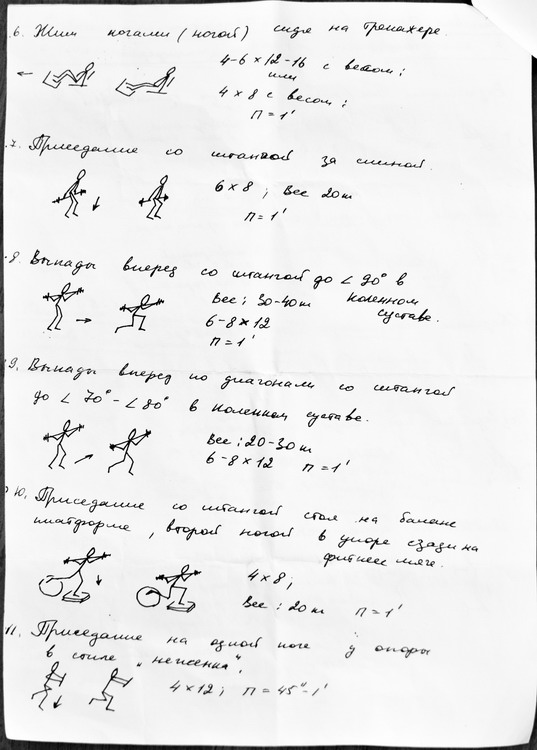 6. Жим ногами (ногой) сидя на тренажере.
4-6 × 12-16 с весом;
или
4 × 8 с весом;
П = 1'
7. Приседание со штангой за спиной.
6 × 8 ; Вес 20 кг
П = 1'
8. Выпады вперед со штангой до ∠ 90° в
коленном
суставе.
Вес: 30-40 кг
6-8 × 12
П = 1'
9. Выпады вперед по диагонали со штангой
до ∠ 70° - ∠ 80° в коленном суставе.
Вес: 20-30 кг
6-8 × 12 П = 1'
10. Приседание со штангой стоя на баланс
платформе, второй ногой в упоре сзади на
фитнес мяче.
4 × 8 ;
Вес: 20 кг П = 1'
11. Приседание на одной ноге у опоры
в стиле „неженка“,
4 × 12 ; П = 45"-1'